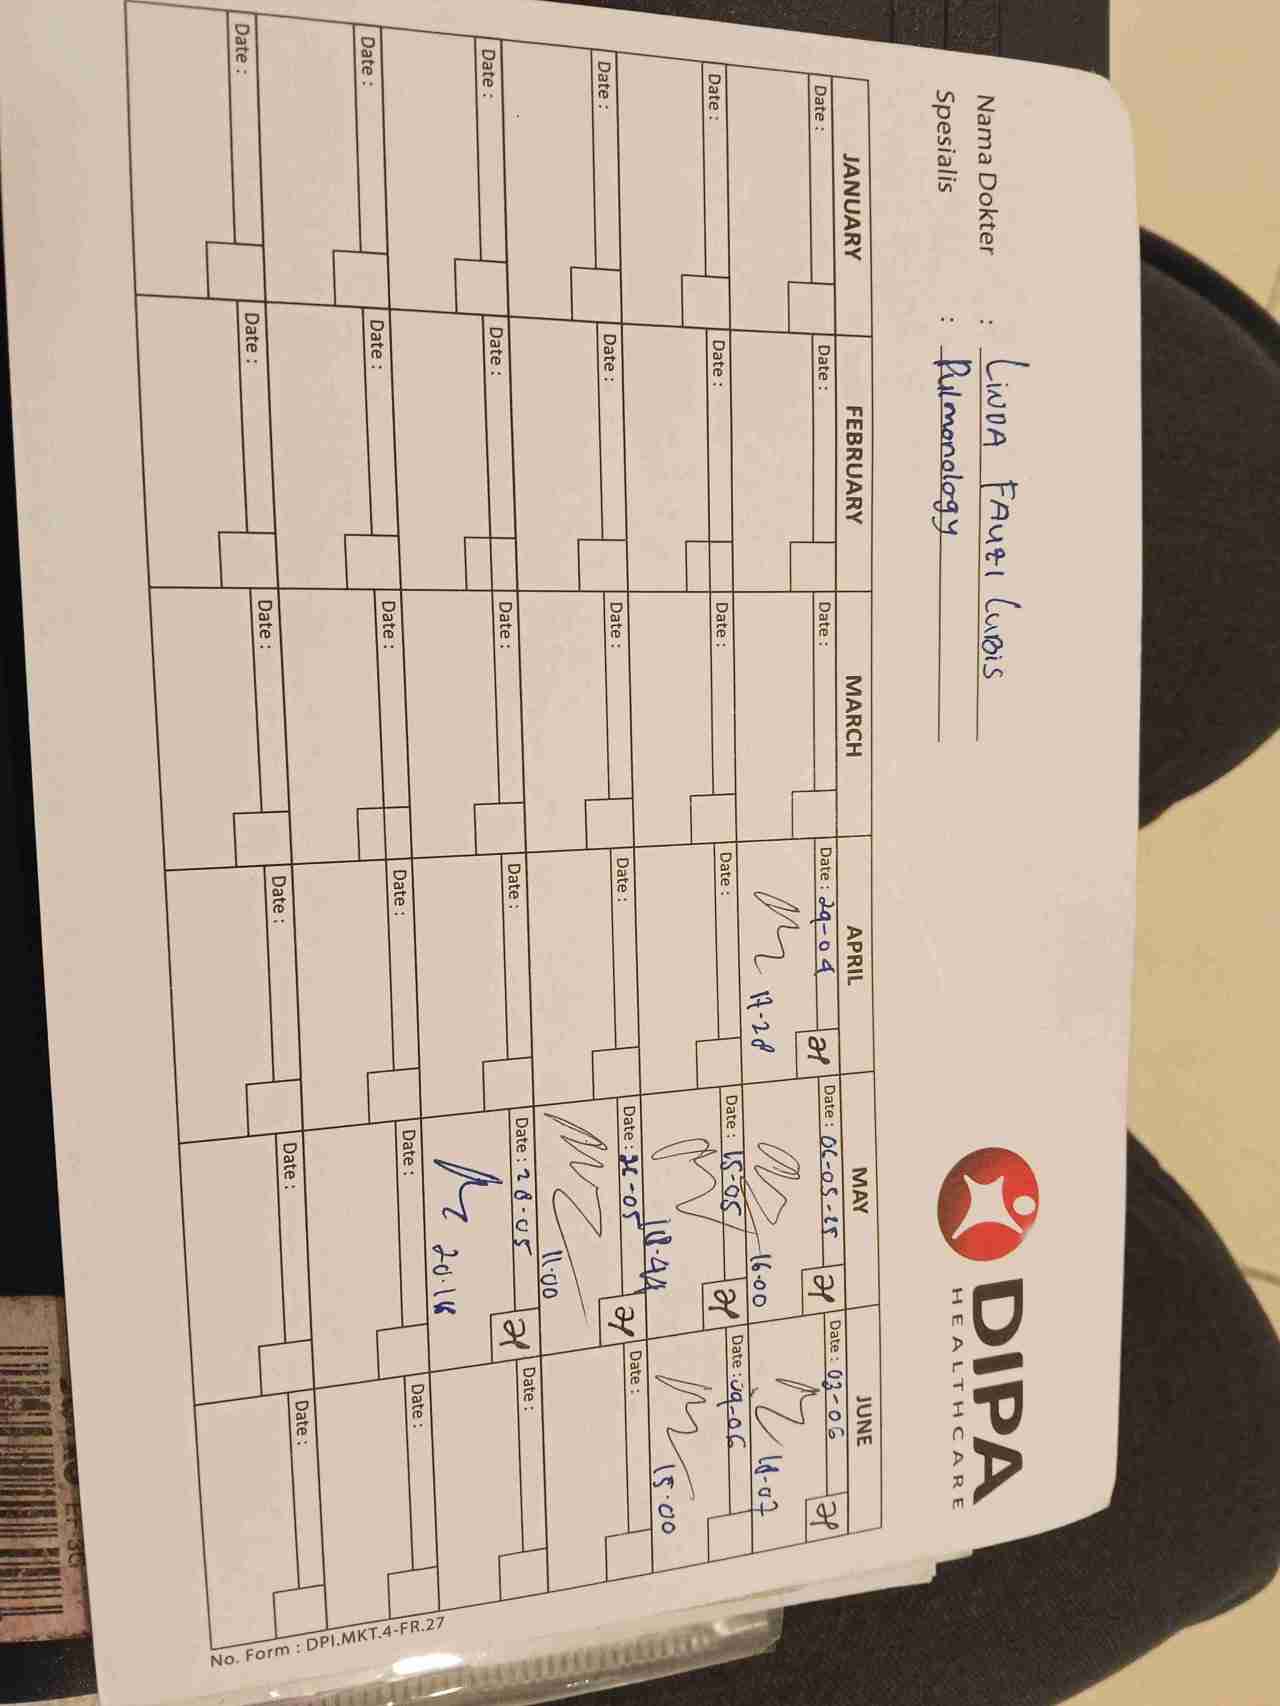 Nama Dokter : LINDA FAUZI LUBIS
Spesialis : Pulmonology
DIPA
HEALTHCARE
JANUARY FEBRUARY MARCH APRIL MAY JUNE
Date : Date : Date : Date : 29-04 Date : 06-05-25 Date : 03-06
17-28 16.00 18-07
Date : Date : Date : Date : Date : 15-05 Date : 09-06
18.44 15.00
Date : Date : Date : Date : Date : 26-05 Date :
11.00
Date : Date : Date : Date : Date : 28-05 Date :
20.18
Date : Date : Date : Date : Date : Date :
Date : Date : Date : Date : Date : Date :
No. Form : DPI.MKT.4-FR.27